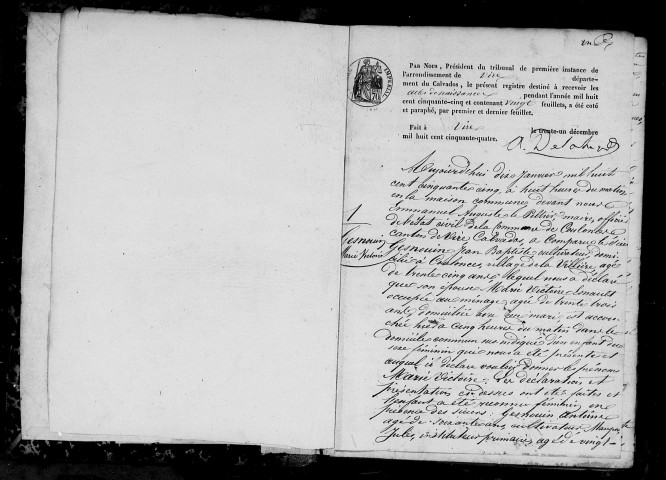 Par Nous, Président du tribunal de première instance de
l'arrondissement de Vire départe-
ment du Calvados, le présent registre destiné à recevoir les
actes de naissance pendant l'année mil huit
cent cinquante-cinq et contenant vingt feuillets, a été coté
et paraphé, par premier et dernier feuillet.
Fait à Vire le trente-un décembre
mil huit cent cinquante-quatre.
1
Gesnouin
Marie Victoire
Aujourd'hui dix Janvier mil huit
cent cinquante cinq, à huit heures du matin
en la maison commune, devant nous
Emmanuel Auguste le maire, officier
de l'état civil de la Commune de Coulonces
canton de Vire Calvados, a comparu le sieur
Gesnouin Jean Baptiste, cultivateur domi
cilié à Coulonces, village de la agé
de trente cinq ans, lequel nous a déclaré
que son épouse Marie Victoire
occupée au ménage, agée de trente trois
ans domiciliée avec son mari, est accou
chée hier à cinq heures du matin dans le
domicile commun sus indiqué d'un enfant de
sexe féminin qui nous a été présenté et
auquel il déclare vouloir donner les prénoms
Marie Victoire. Les déclaration et
présentation ont été faites et
l'enfant a été reconnu féminin en
présence des sieurs: Gesnouin Antoine
agé de soixante ans, cultivateur,
Jules, instituteur primaire, agé de vingt-